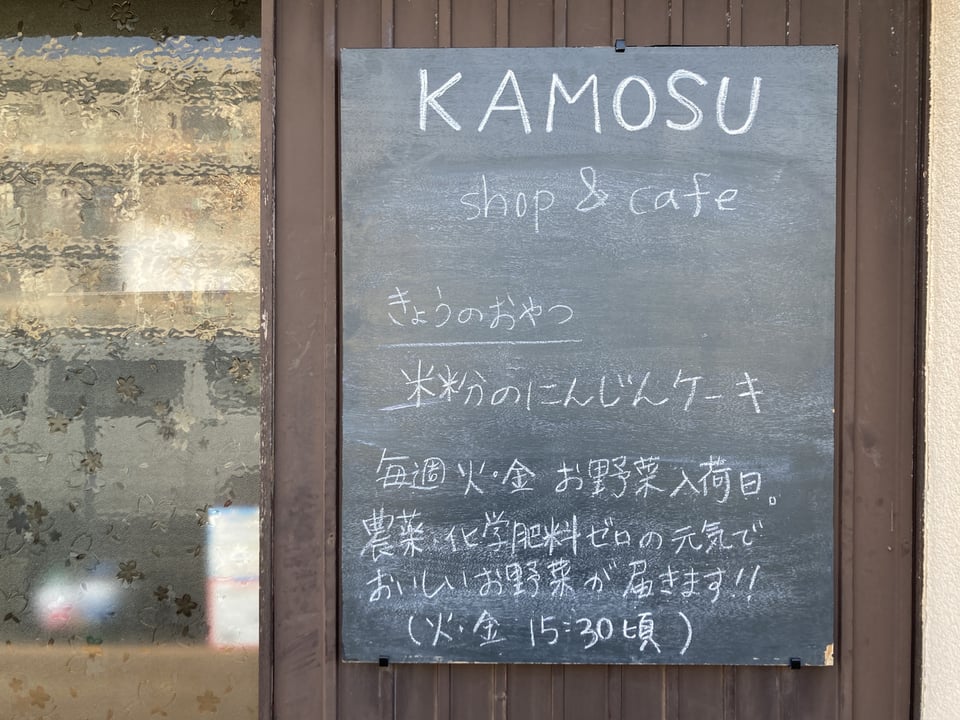 KAMOSU
shop & cafe
きょうのおやつ
米粉のにんじんケーキ
毎週 火・金 お野菜入荷日。
農薬・化学肥料ゼロの元気で
おいしいお野菜が届きます!!
(火・金 15:30頃)